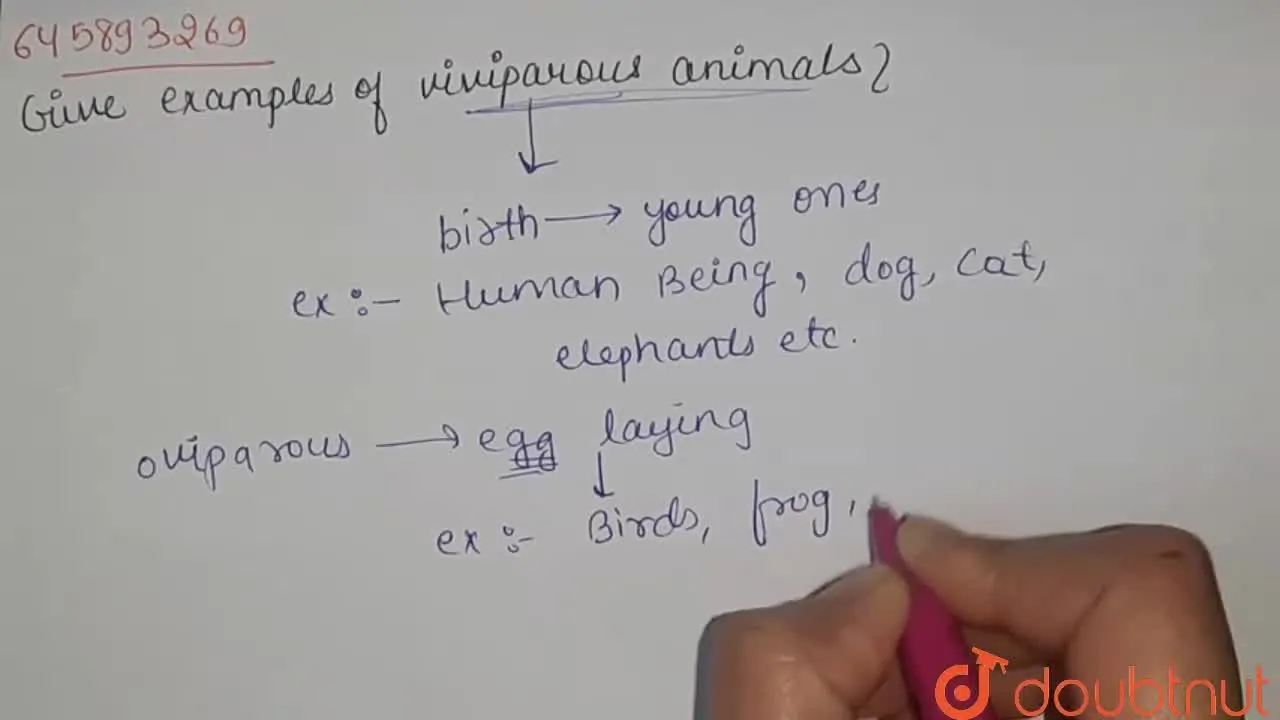 645893269
Give examples of viviparous animals?
birth → young ones
ex :- Human Being, dog, cat,
elephants etc.
oviparous → egg laying
ex :- Birds, frog,
doubtnut